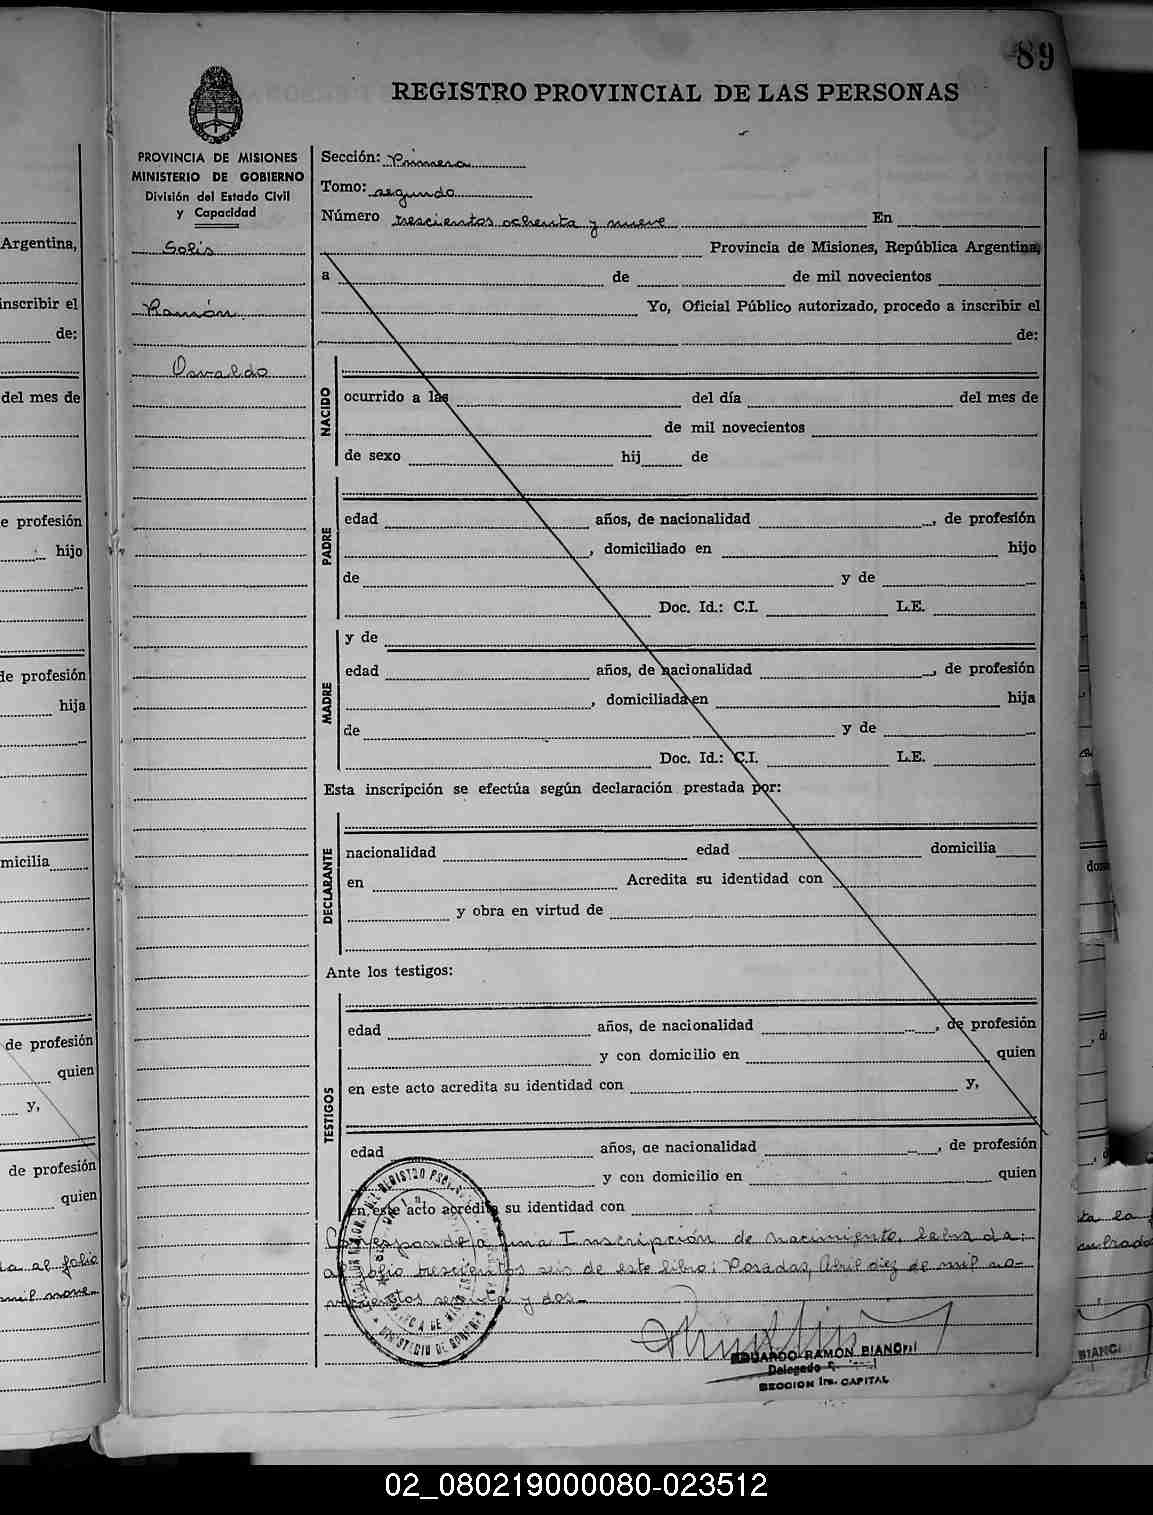 89
REGISTRO PROVINCIAL DE LAS PERSONAS
PROVINCIA DE MISIONES
MINISTERIO DE GOBIERNO
División del Estado Civil
y Capacidad
Solis
Ramón
Osvaldo
Sección: Primera
Tomo: segundo
Número trescientos ochenta y nueve En
Provincia de Misiones, República Argentina,
a de de mil novecientos
Yo, Oficial Público autorizado, procedo a inscribir el
de:
NACIDO
ocurrido a las del día del mes de
de mil novecientos
de sexo hij de
PADRE
edad años, de nacionalidad , de profesión
, domiciliado en hijo
de y de
Doc. Id.: C.I. L.E.
y de
MADRE
edad años, de nacionalidad , de profesión
, domiciliada en hija
de y de
Doc. Id.: C.I. L.E.
Esta inscripción se efectúa según declaración prestada por:
DECLARANTE
nacionalidad edad domicilia
en Acredita su identidad con
y obra en virtud de
Ante los testigos:
TESTIGOS
edad años, de nacionalidad , de profesión
y con domicilio en quien
en este acto acredita su identidad con y,
edad años, de nacionalidad , de profesión
y con domicilio en quien
en este acto acredita su identidad con
Corresponde a una Inscripción de nacimiento, labrada:
al folio trescientos seis de este libro: Posadas, Abril diez de mil no-
vecientos setenta y dos.-
EDUARDO RAMON BIANCHI
Delegado
SECCION 1ra. CAPITAL
Argentina,
inscribir el
de:
del mes de
e profesión
hijo
de profesión
hija
micilia
de profesión
quien
y,
de profesión
quien
al folio
mil nove-
02_080219000080-023512